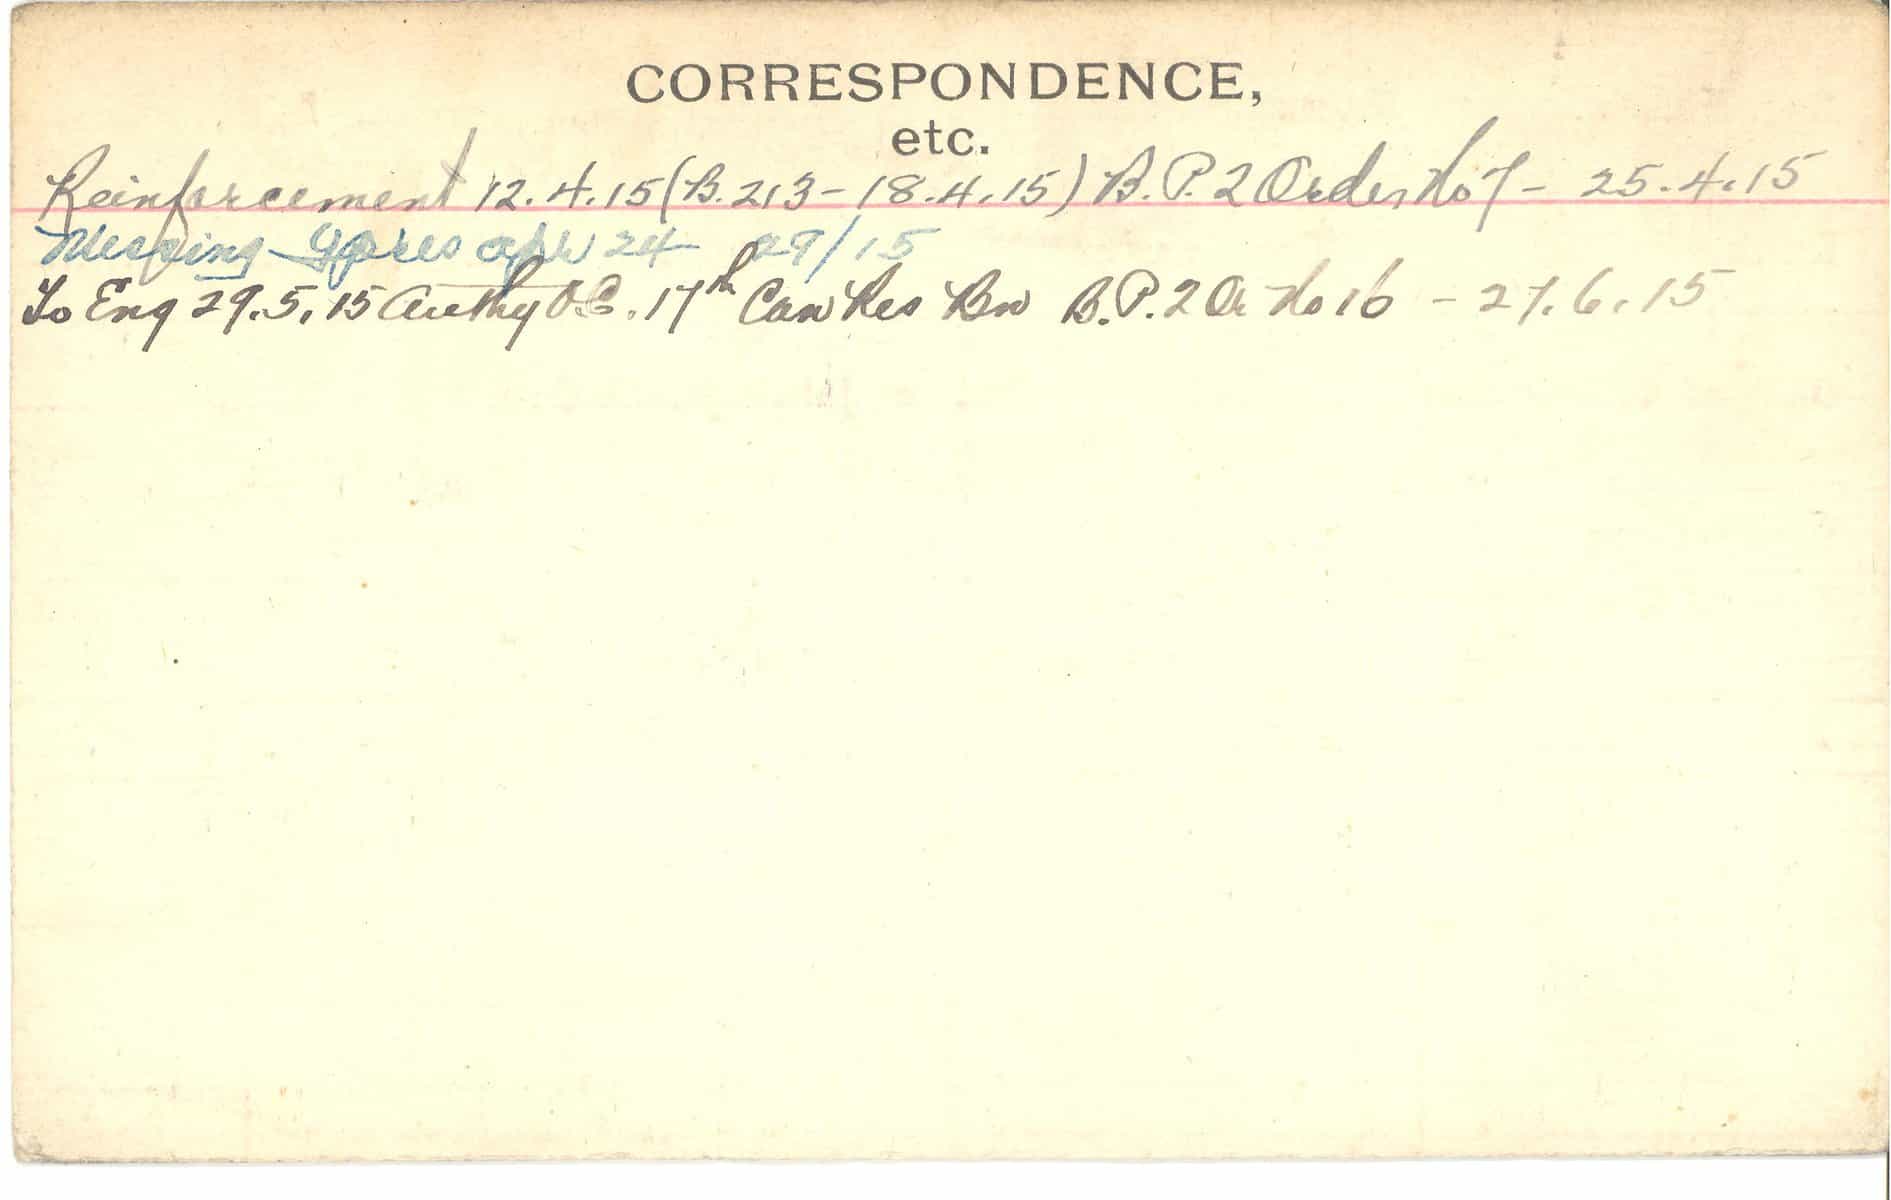 CORRESPONDENCE,
etc.
Reinforcement 12.4.15 (B.213 - 18.4.15) B.P.2 Order No 7 - 25.4.15
Missing Ypres apr 24 29/15
To Eng 29.5.15 Authy O.C. 17th Can Res Bn B.P.2 Or No 16 - 27.6.15